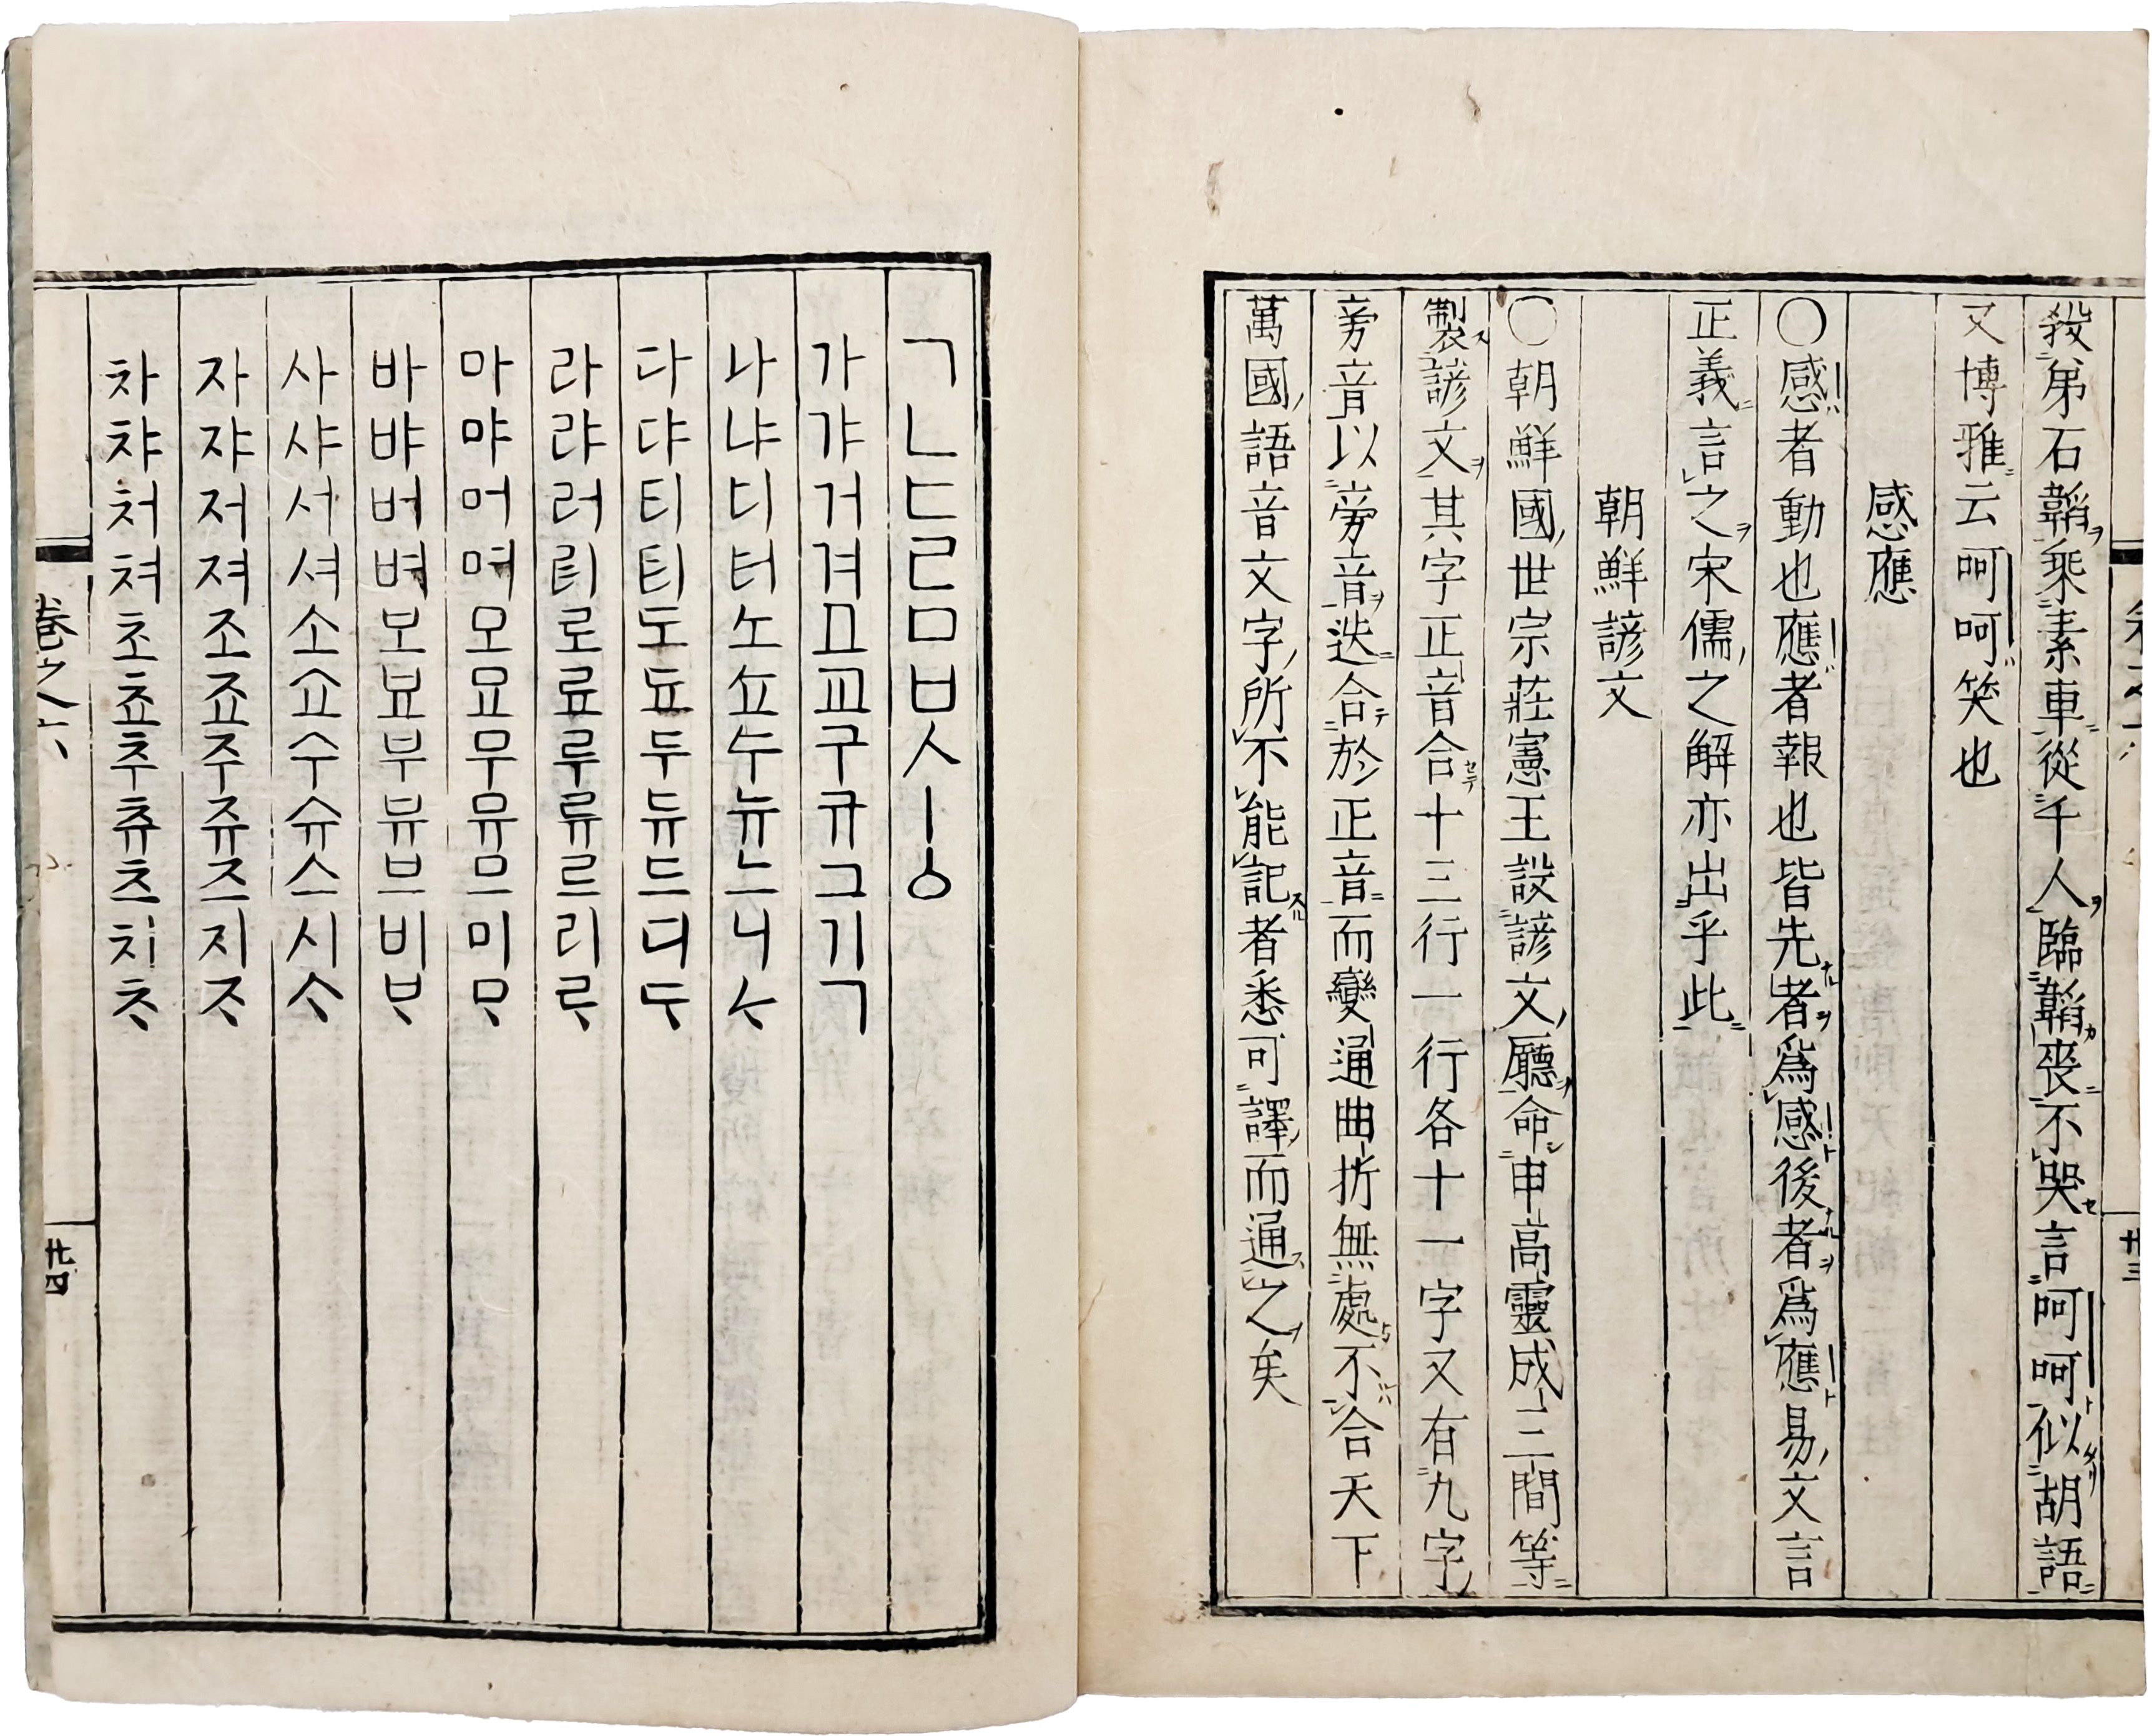 殺弟石韜乘素車從千人臨韜喪不哭言呵呵似胡語
又博雅云呵呵笑也
感應
○感者動也應者報也皆先者爲感後者爲應易文言
正義言之宋儒之解亦出乎此
朝鮮諺文
○朝鮮國世宗莊憲王設諺文廳命申高靈成三間等
製諺文其字正音合十三行一行各十一字又有九字
旁音以旁音迭合於正音而變通曲折無處不合天下
萬國語音文字所不能記者悉可譯而通之矣
廿三
ㄱㄴㄷㄹㅁㅂㅅㅣㆁ
가갸거겨고교구규그기ㄱ
나냐너녀노뇨누뉴느니ᄂᆞ
다댜더뎌도됴두듀드디ᄃᆞ
라랴러려로료루류르리ᄅᆞ
마먀머며모묘무뮤므미ᄆᆞ
바뱌버벼보뵤부뷰브비ᄇᆞ
사샤서셔소쇼수슈스시ᄉᆞ
자쟈저져조죠주쥬즈지ᄌᆞ
차챠처쳐초쵸추츄츠치ᄎᆞ
卷之六
廿四